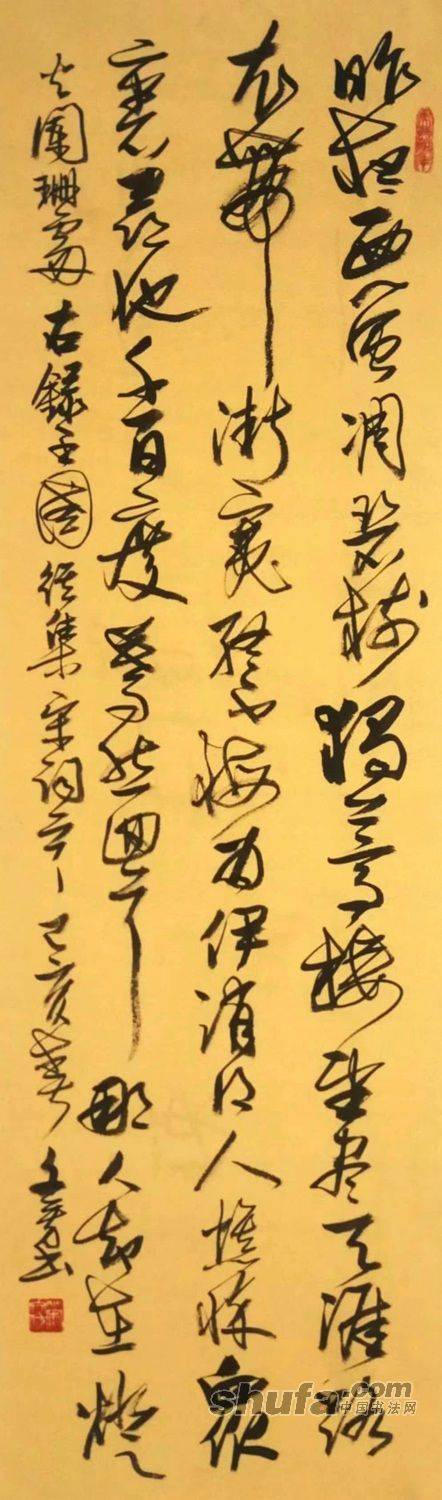 昨夜西風凋碧樹獨上高樓望盡天涯路
衣帶漸寬終不悔為伊消得人憔悴眾
裏尋他千百度驀然回首那人卻在燈
火闌珊處 右錄王國維集宋詞 己亥春
shufa.com
中国书法网